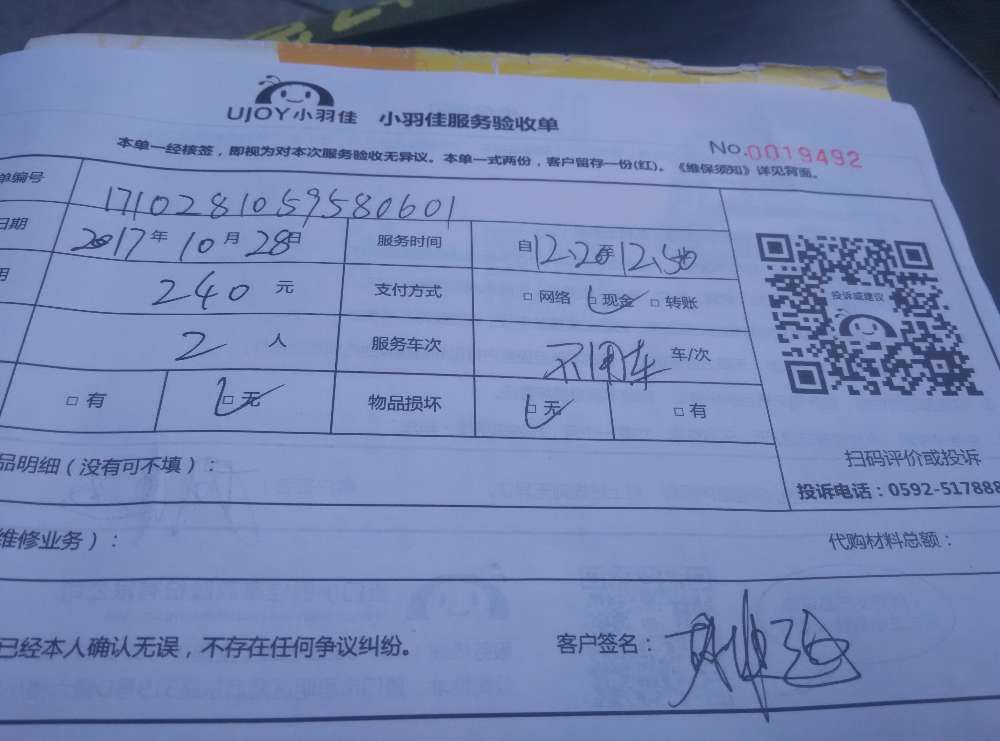 UJOY小羽佳 小羽佳服务验收单
No.0019492
本单一经核签，即视为对本次服务验收无异议。本单一式两份，客户留存一份(红)。《维保须知》详见背面。
单编号 1710281059580601
日期 2017年10月28日 服务时间 自12.20至12.50
240 元 支付方式 □ 网络 □ 现金 □ 转账
投诉或建议
2 人 服务车次 不用车 车/次
□ 有 □ 无 物品损坏 □ 无 □ 有
扫码评价或投诉
品明细（没有可不填）：
投诉电话：0592-517888
维修业务）： 代购材料总额：
已经本人确认无误，不存在任何争议纠纷。 客户签名：